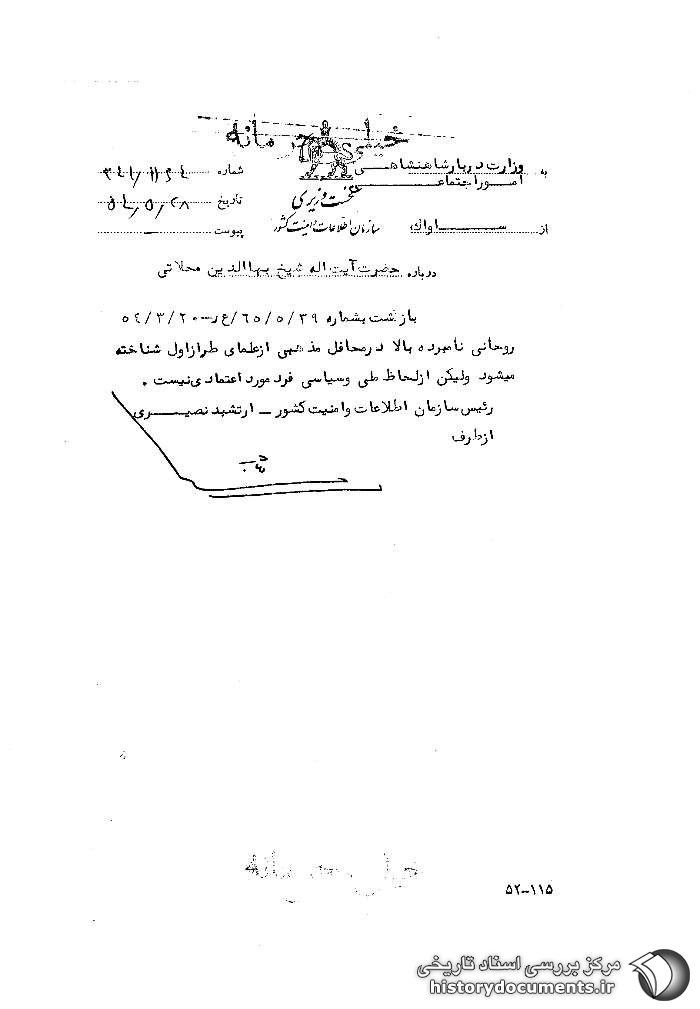 خیلی محرمانه
به وزارت دربار شاهنشاهی
امور اجتماعی
نخست وزیری
سازمان اطلاعات و امنیت کشور
از ســـاواک
شماره
تاریخ ۵۴/۵/۲۸
پیوست
درباره حضرت آیت اله شیخ بهاالدین محلاتی
بازگشت بشماره ۶۵/۵/۳۹/ع ر-۵۴/۳/۲۰
روحانی نامبرده بالا در محافل مذهبی از علمای طراز اول شناخته
میشود ولیکن از لحاظ ملی وسیاسی فرد مورد اعتمادی نیست .
رئیس سازمان اطلاعات وامنیت کشور ــ ارتشبد نصیــری
از طرف
خیلی محرمانه
۵۲-۱۱۵
مرکز بررسی اسناد تاریخی
historydocuments.ir